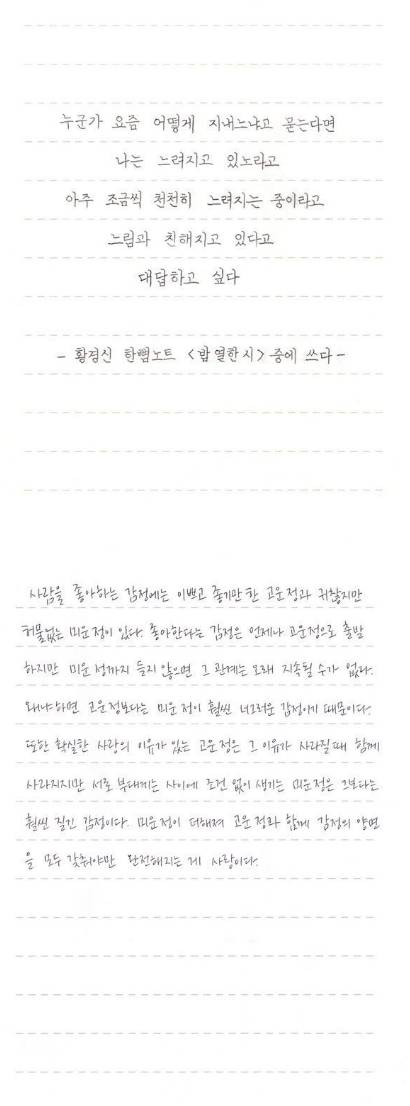 누군가 요즘 어떻게 지내느냐고 묻는다면
나는 느려지고 있노라고
아주 조금씩 천천히 느려지는 중이라고
느림과 친해지고 있다고
대답하고 싶다
- 황경신 한뼘노트 <밤 열한시> 중에 쓰다 -
사람을 좋아하는 감정에는 이쁘고 좋기만 한 고운정과 귀찮지만
허물없는 미운정이 있다. 좋아한다는 감정은 언제나 고운정으로 출발
하지만 미운정까지 들지 않으면 그 관계는 오래 지속될 수가 없다.
왜냐하면 고운정보다는 미운정이 훨씬 너그러운 감정이기 때문이다.
또한 확실한 사랑의 이유가 있는 고운정은 그 이유가 사라질 때 함께
사라지지만 서로 부대끼는 사이에 조건 없이 생기는 미운정은 그보다는
훨씬 질긴 감정이다. 미운정이 더해져 고운정과 함께 감정의 양면
을 모두 갖춰야만 완전해지는 게 사랑이다.